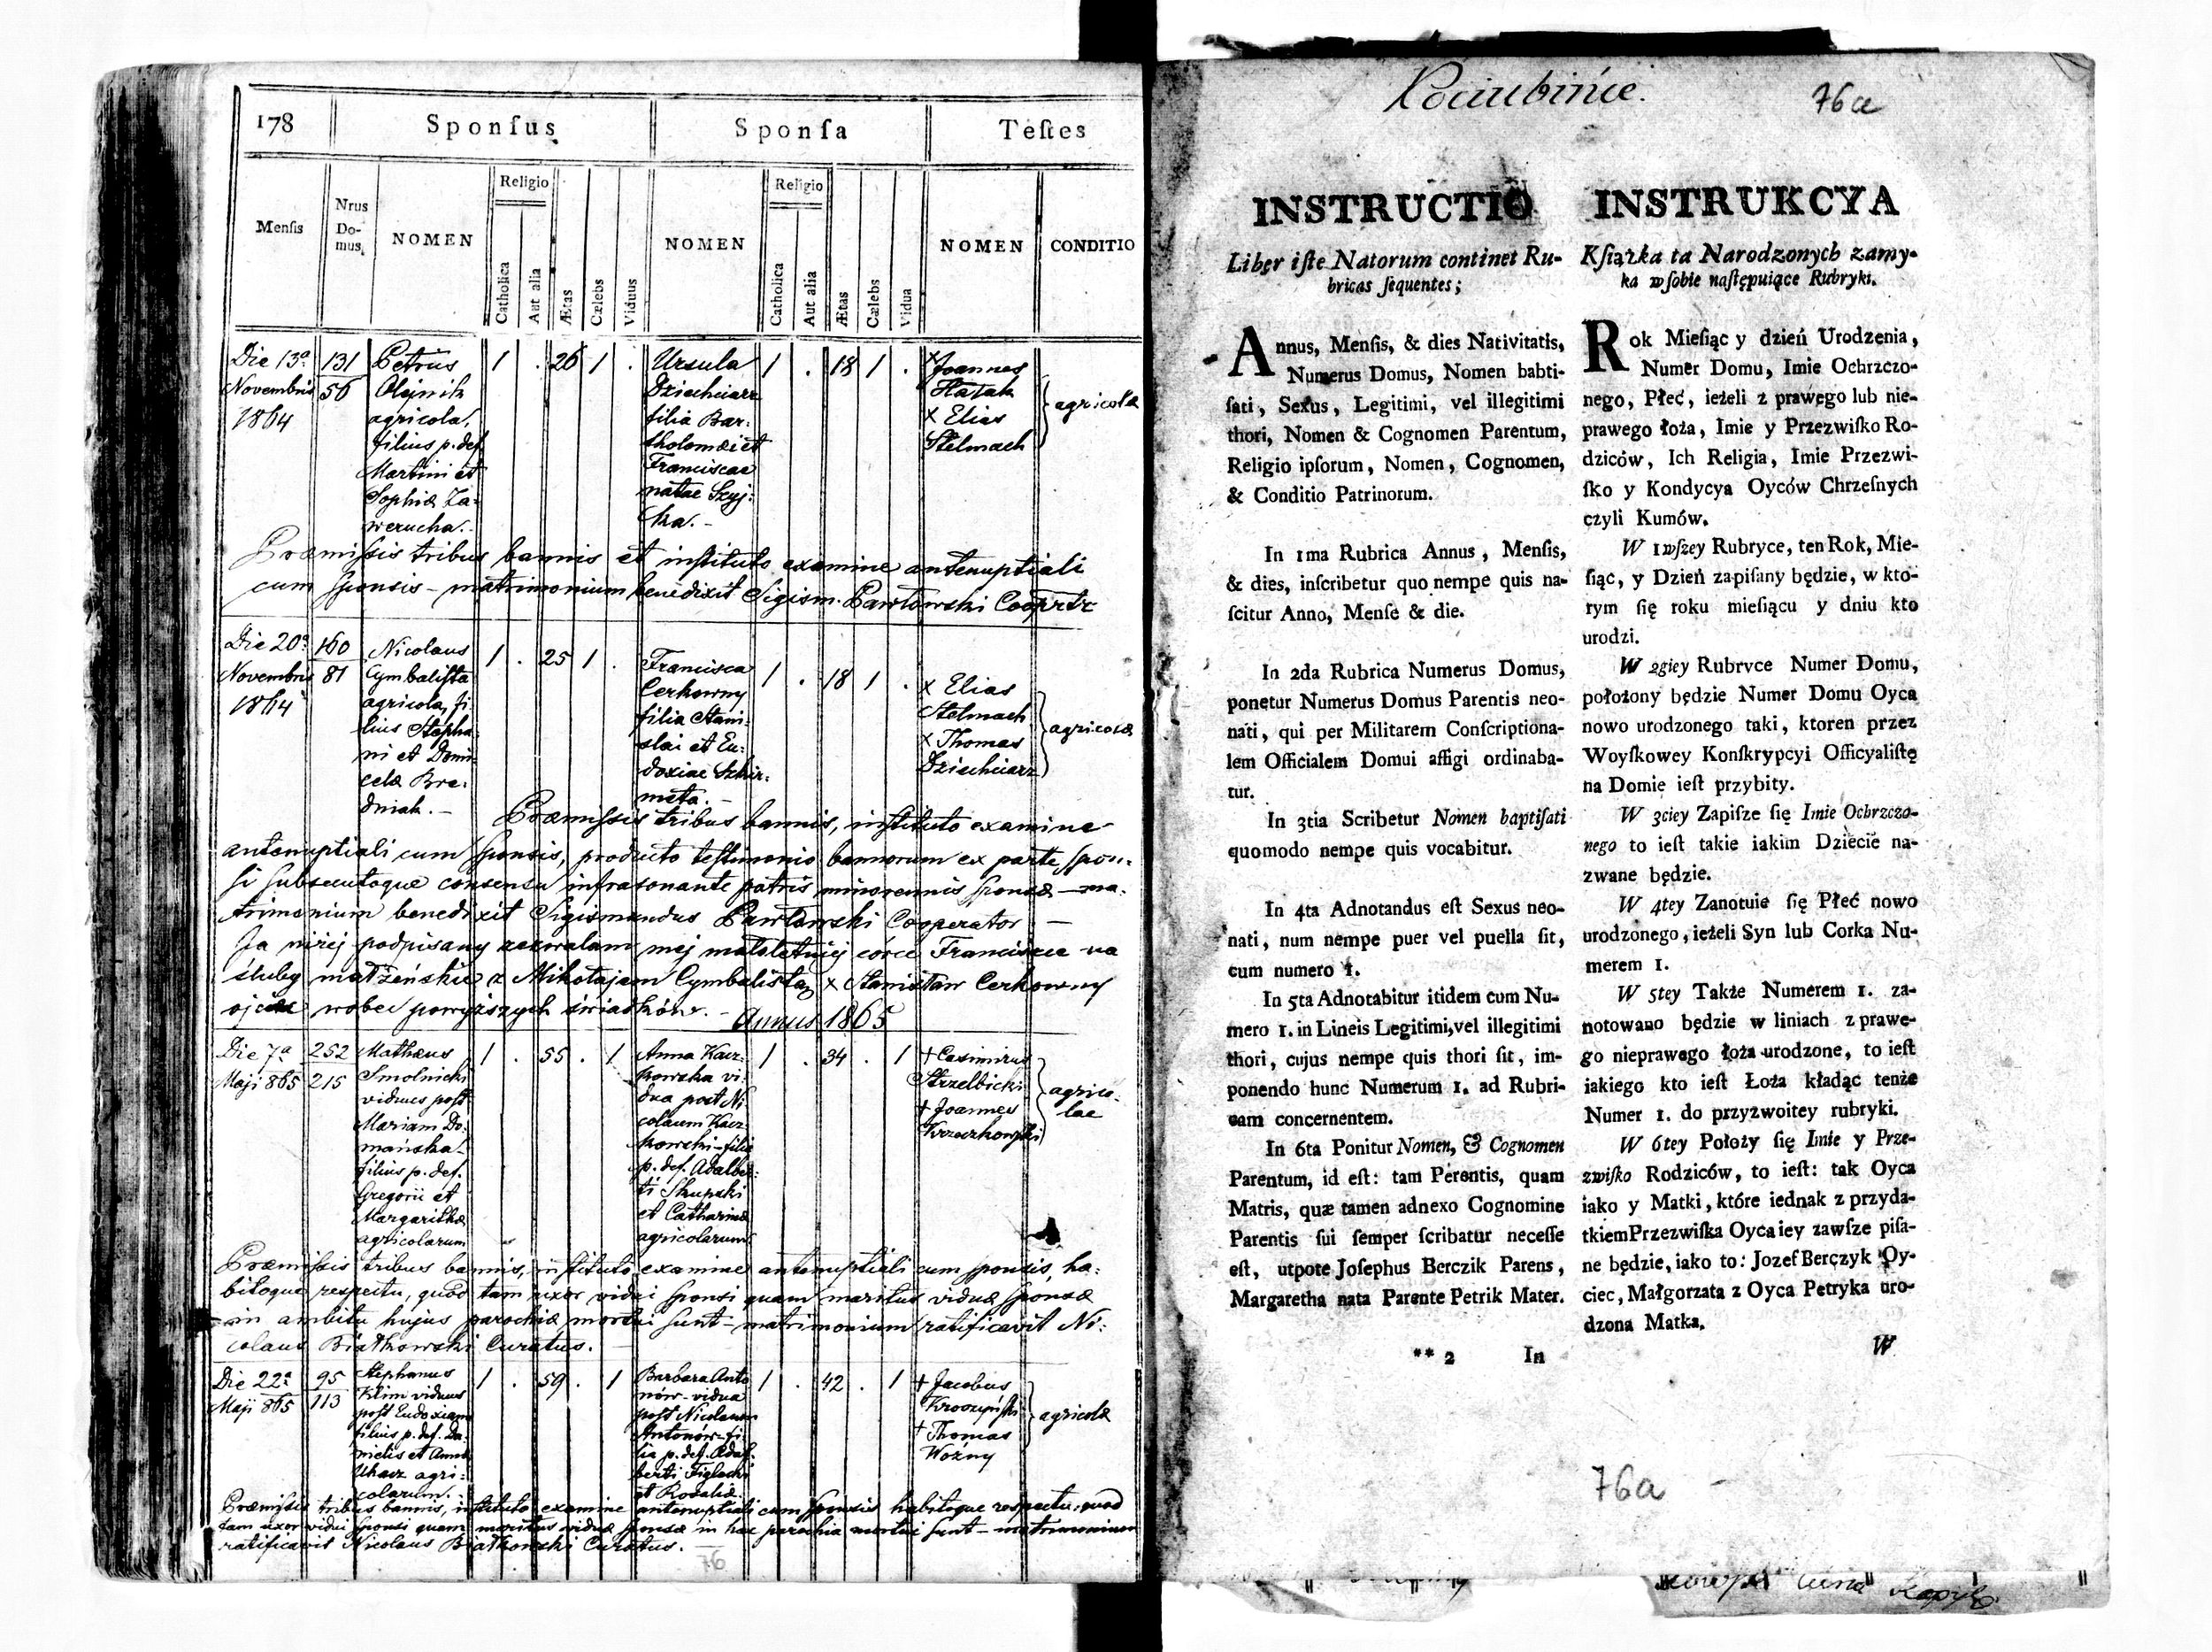 178
Sponſus
Sponſa
Teſtes
Menſis
Nrus
Do-
mus
NOMEN
Religio
Catholica
Aut alia
Ætas
Cælebs
Viduus
NOMEN
Religio
Catholica
Aut alia
Ætas
Cælebs
Vidua
NOMEN
CONDITIO
Die 13ª
Novembris
1864
131
56
Petrus
Olejnik
agricola,
filius p. def.
Martini et
Sophiæ Za-
werucha.-
1 . 26 1 .
Ursula
Dziechciarz
filia Bar-
tholomæi et
Franciscae
natae Szyj-
ka.-
1 . 18 1 .
x Joannes
Hatak
x Elias
Stelmach
agricolæ
Præmiſsis tribus bannis et inſtituto examine antenuptiali
cum ſponsis - matrimonium benedixit Sigism. Pawłowski Cooprtr
Die 20ª
Novembris
1864
160
81
Nicolaus
Cymbaliſta
agricola, fi-
lius Stepha-
ni et Domi-
celæ Bre-
dniak.-
1 . 25 1 .
Francisca
Cerkowny
filia Stani-
slai et Eu-
doxiae Szkir-
meta.-
1 . 18 1 .
x Elias
Stelmach
x Thomas
Dziechciarz
agricolæ
Præmiſsis tribus bannis, inſtituto examine
antenuptiali cum ſponsis, producto teſtimonio bannorum ex parte ſpon-
ſi ſubsecutoque consensu infrasonante patris minorennis ſponsæ - ma-
trimonium benedixit Sigismundus Pawłowski Cooperator -
Ja niżej podpisany zezwalam mej małoletniej córce Franciszce na
śluby małżeńskie z Mikołajem Cymbalistą x Stanisław Cerkowny
ojciec wobec powyższych świadków.-
Annus 1865
Die 7ª
Maji 865
252
215
Mathæus
Smolnicki
viduus post
Mariam Do-
mańska-
filius p. def.
Gregorii et
Margarithæ
agricolarum
1 . 55 . 1
Anna Kacz-
kowska vi-
dua post Ni-
colaum Kacz-
kowski - filia
p. def. Adalber-
ti Skupski
et Catharinæ
agricolarum
1 . 34 . 1
+ Casimirus
Strzelbicki
+ Joannes
Kraczkowski
agrico-
lae
Præmiſsis tribus bannis, inſtituto examine antenuptiali cum ſponsis, ha-
bitoque respectu, quod tam uxor vidui ſponsi quam maritus viduæ ſponsæ
in ambitu hujus parochiæ mortui ſunt - matrimonium ratificavit Ni-
colaus Białkowski Curatus.
Die 22ª
Maji 865
95
113
Stephanus
Klim viduus
poſt Eudoxiam
filius p. def. Da-
nielis et Annæ
Ukacz agri-
colarum.-
1 . 59 . 1
Barbara Anto
nów - vidua
poſt Nicolaum
Antonów - fi-
lia p. def. Adal-
berti Figlacki
et Rosaliæ
1 . 42 . 1
+ Jacobus
Kroczyński
+ Thomas
Woźny
agricolæ
Præmiſsis tribus bannis, inſtituto examine antenuptiali cum ſponsis habitoque respectu, quod
tam uxor vidui ſponsi quam maritus viduæ ſponsæ in hac parochia mortui ſunt - matrimonium
ratificavit Nicolaus Białkowski Curatus.
76
Kociubińce.
76a
INSTRUCTIO
Liber iſte Natorum continet Ru-
bricas ſequentes;
Annus, Menſis, & dies Nativitatis,
Numerus Domus, Nomen babti-
ſati, Sexus, Legitimi, vel illegitimi
thori, Nomen & Cognomen Parentum,
Religio ipſorum, Nomen, Cognomen,
& Conditio Patrinorum.
In 1ma Rubrica Annus, Menſis,
& dies, inſcribetur quo nempe quis na-
ſcitur Anno, Menſe & die.
In 2da Rubrica Numerus Domus,
ponetur Numerus Domus Parentis neo-
nati, qui per Militarem Conſcriptiona-
lem Officialem Domui affigi ordinaba-
tur.
In 3tia Scribetur Nomen baptiſati
quomodo nempe quis vocabitur.
In 4ta Adnotandus eſt Sexus neo-
nati, num nempe puer vel puella ſit,
cum numero 1.
In 5ta Adnotabitur itidem cum Nu-
mero 1. in Lineis Legitimi, vel illegitimi
thori, cujus nempe quis thori ſit, im-
ponendo hunc Numerum 1. ad Rubri-
cam concernentem.
In 6ta Ponitur Nomen, & Cognomen
Parentum, id eſt: tam Perentis, quam
Matris, quæ tamen adnexo Cognomine
Parentis ſui ſemper ſcribatur neceſſe
eſt, utpote Joſephus Berczik Parens,
Margaretha nata Parente Petrik Mater.
** 2 In
INSTRUKCYA
Kſiążka ta Narodzonych zamy-
ka w ſobie naſtępuiące Rubryki.
Rok Mieſiąc y dzień Urodzenia,
Numer Domu, Imie Ochrzczo-
nego, Płeć, ieżeli z prawego lub nie-
prawego łoża, Imie y Przezwiſko Ro-
dziców, Ich Religia, Imie Przezwi-
ſko y Kondycya Oyców Chrzeſnych
czyli Kumów.
W 1wſzey Rubryce, ten Rok, Mie-
ſiąc, y Dzień zapiſany będzie, w kto-
rym ſię roku mieſiącu y dniu kto
urodzi.
W 2giey Rubrvce Numer Domu,
położony będzie Numer Domu Oyca
nowo urodzonego taki, ktoren przez
Woyſkowey Konſkrypcyi Officyaliſtę
na Domie ieſt przybity.
W 3ciey Zapiſze ſię Imie Ochrzczo-
nego to ieſt takie iakim Dziecie na-
zwane będzie.
W 4tey Zanotuie ſię Płeć nowo
urodzonego, ieżeli Syn lub Corka Nu-
merem 1.
W 5tey Także Numerem 1. za-
notowano będzie w liniach z prawe-
go nieprawego łoża urodzone, to ieſt
iakiego kto ieſt Łoża kładąc tenże
Numer 1. do przyzwoitey rubryki.
W 6tey Położy ſię Imie y Prze-
zwiſko Rodziców, to ieſt: tak Oyca
iako y Matki, które iednak z przyda-
tkiem Przezwiſka Oyca iey zawſze piſa-
ne będzie, iako to: Jozef Berczyk Oy-
ciec, Małgorzata z Oyca Petryka uro-
dzona Matka.
W
76a